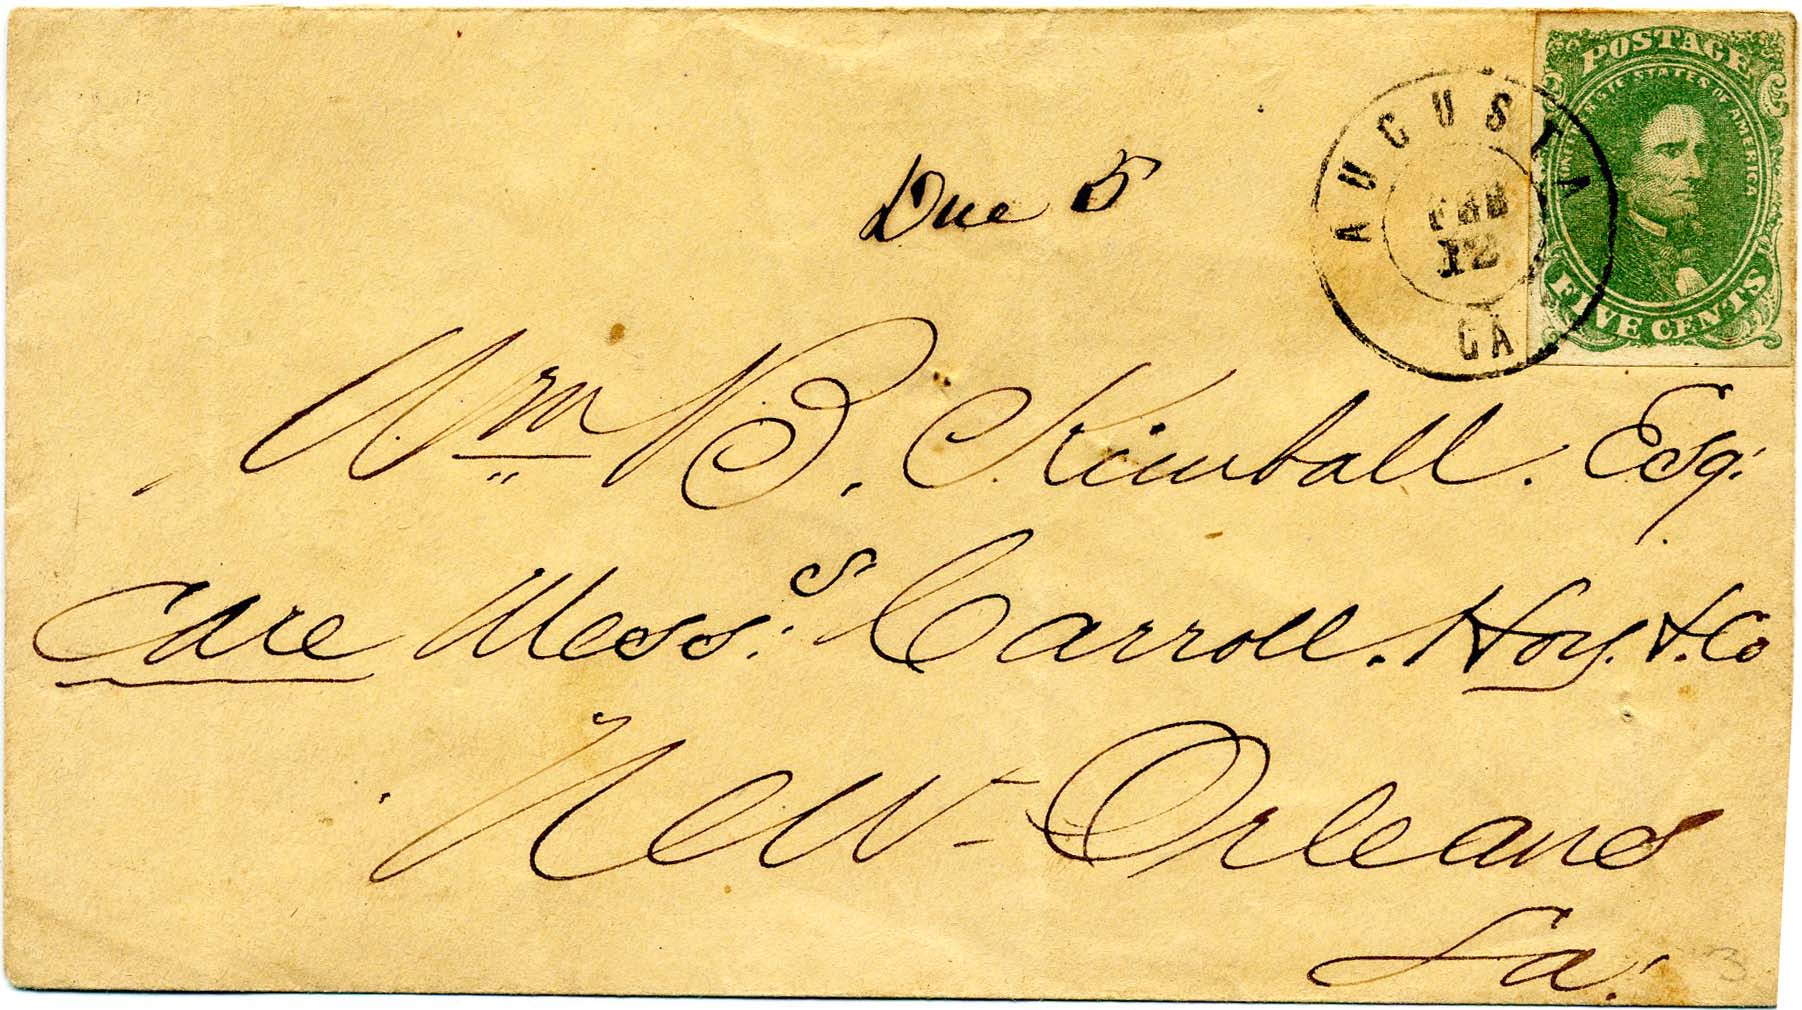 POSTAGE
CONFEDERATE STATES OF AMERICA
FIVE CENTS
AUGUSTA
FEB
12
GA
Due 5
Wm B. Kimball. Esq.
Care Mess:s Carroll. Hoy. & Co
New-Orleans
La.
3